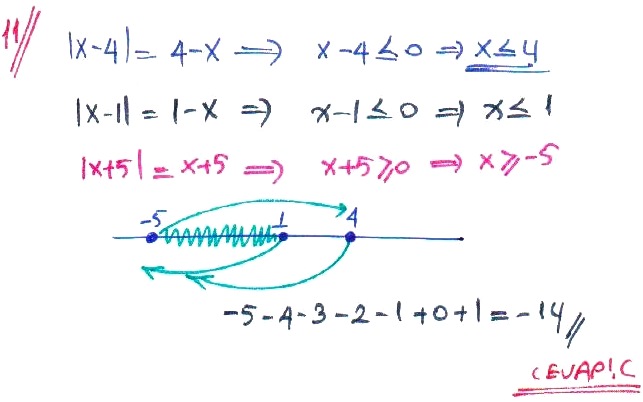 11//
|x-4| = 4-x ⟹ x-4 ≤ 0 ⟹ x ≤ 4
|x-1| = 1-x ⟹ x-1 ≤ 0 ⟹ x ≤ 1
|x+5| = x+5 ⟹ x+5 ≥ 0 ⟹ x ≥ -5
-5 1 4
-5-4-3-2-1+0+1 = -14//
CEVAP: C